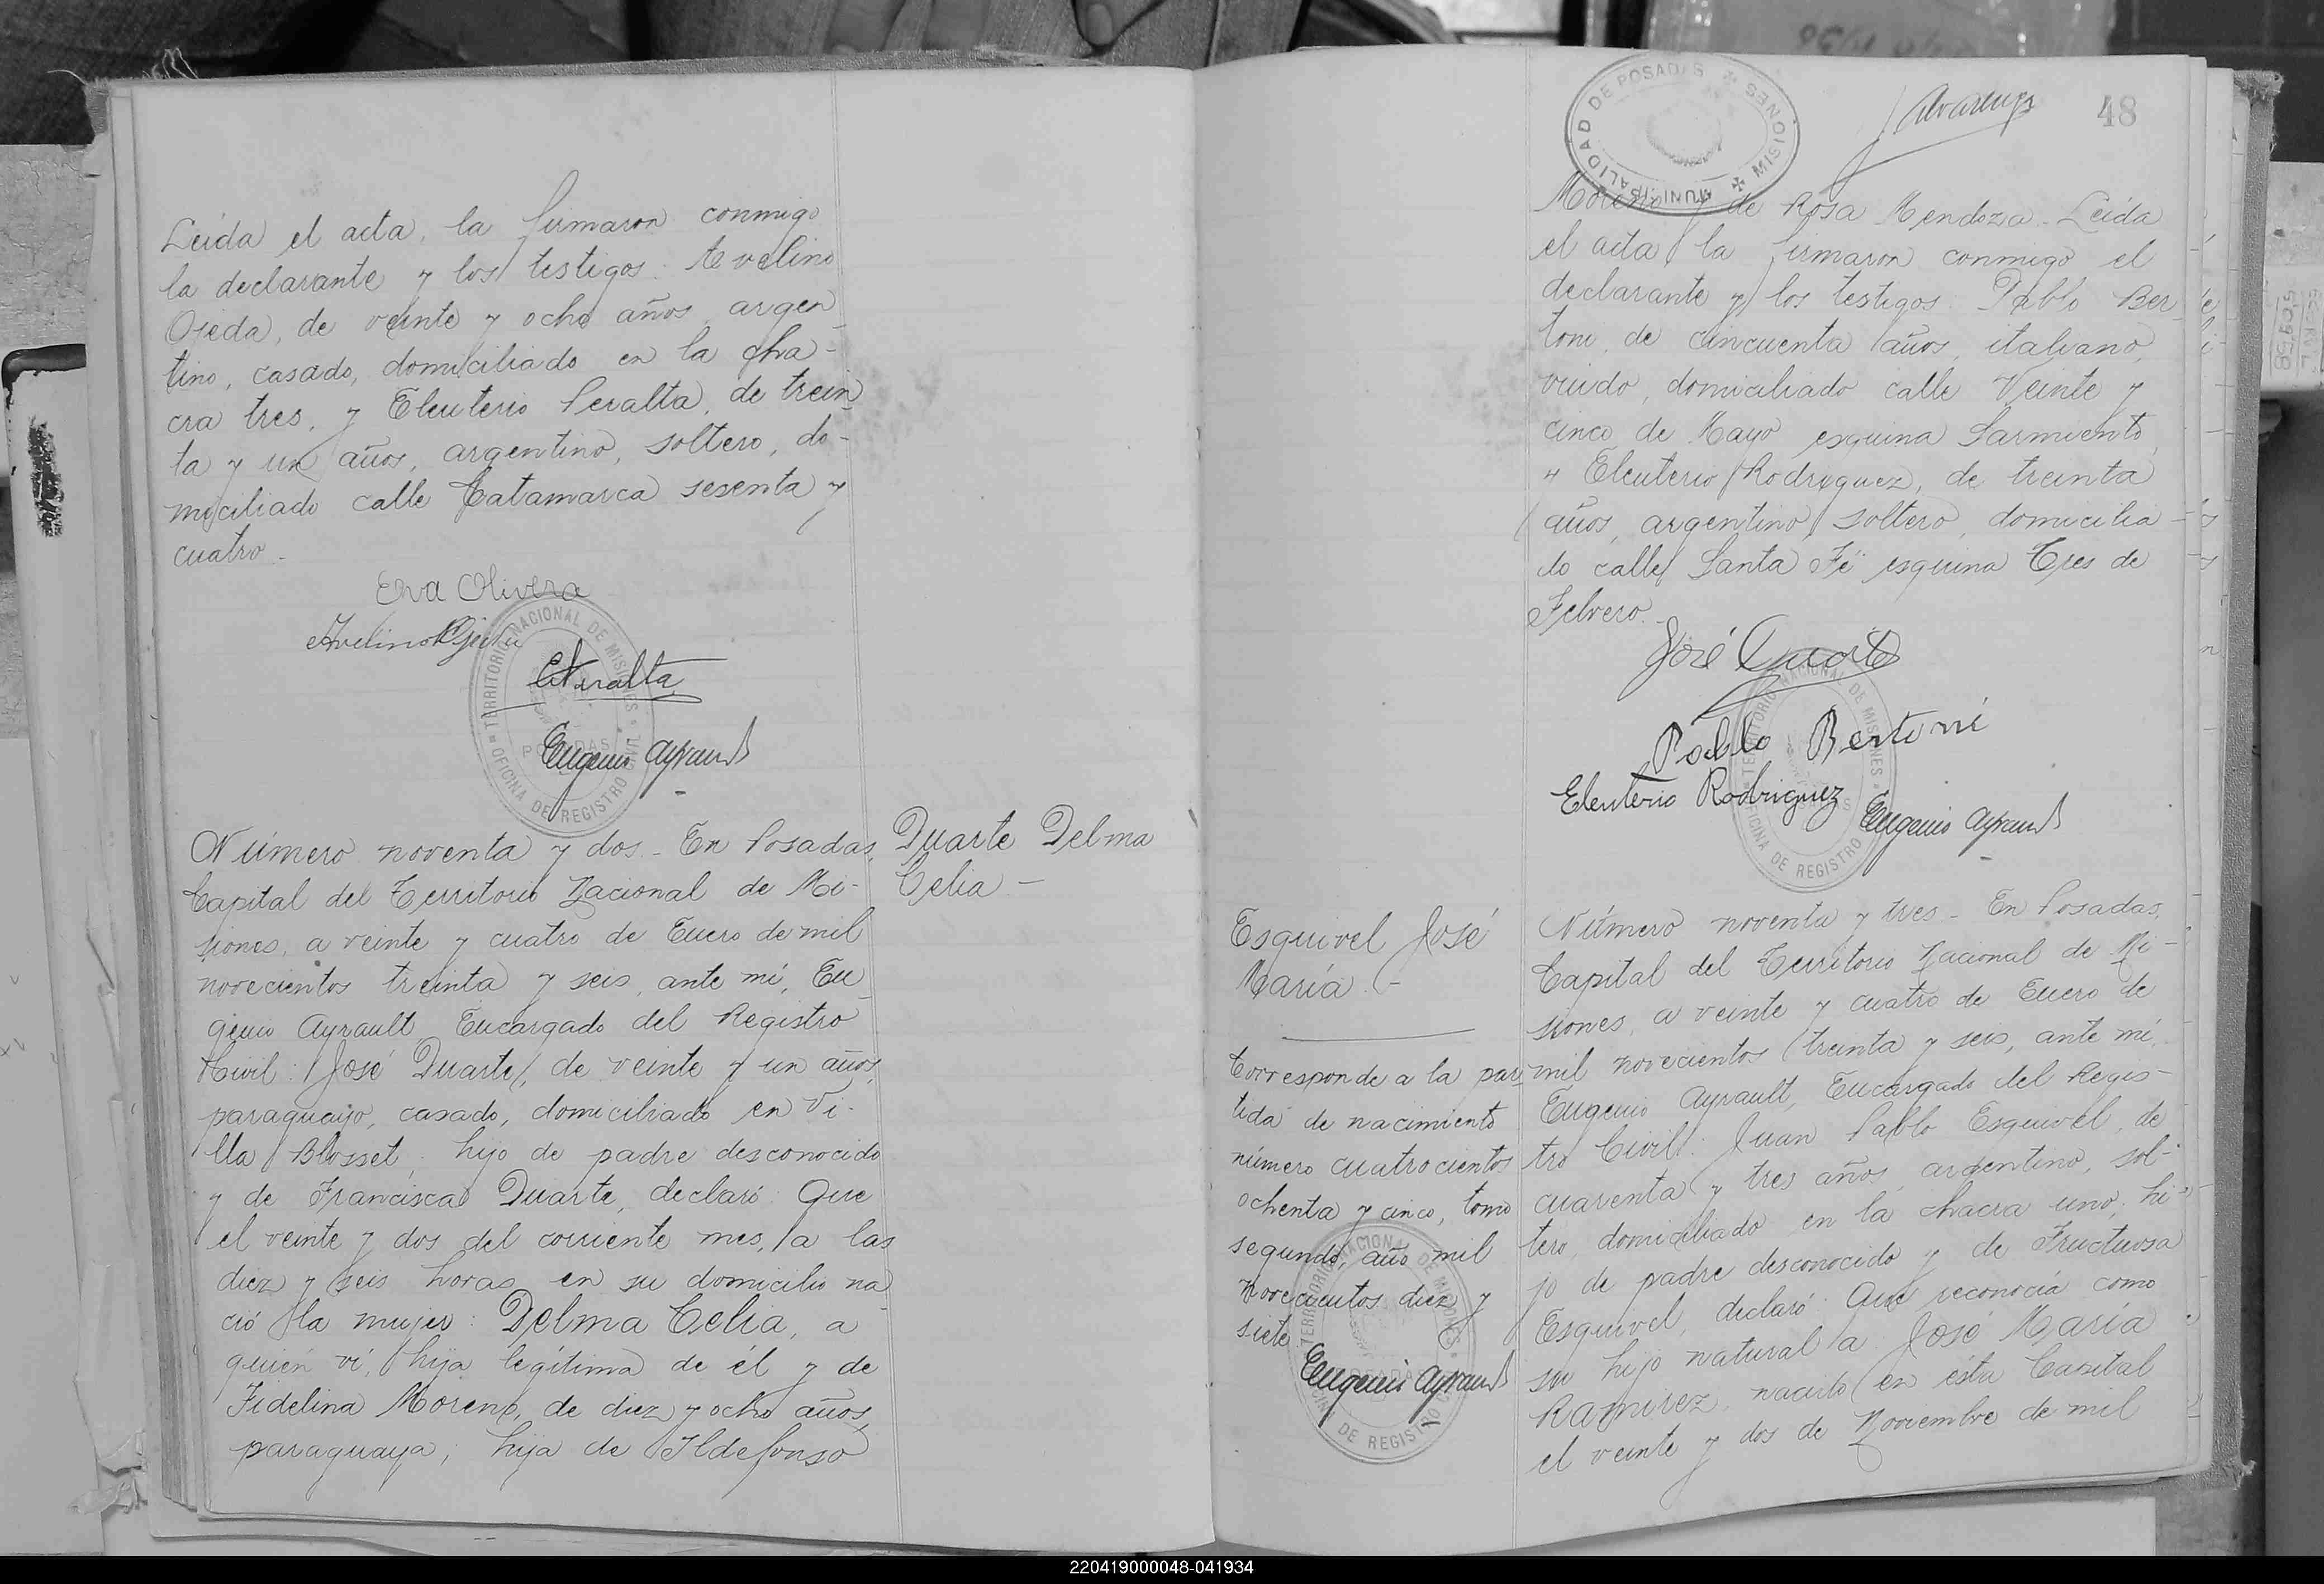 Leída el acta, la firmaron conmigo
la declarante y los testigos: Avelino
Ojeda, de veinte y ocho años, argen-
tino, casado, domiciliado en la cha-
cra tres, y Eleuterio Peralta, de trein-
ta y un años, argentino, soltero, do-
miciliado calle Catamarca sesenta y
cuatro.-
Eva Olivera
Avelino Ojeda
E Peralta
Eugenio Ayrault
TERRITORIO NACIONAL DE MISIONES
POSADAS
OFICINA DE REGISTRO CIVIL
Número noventa y dos - En Posadas,
Capital del Territorio Nacional de Mi-
siones, a veinte y cuatro de Enero de mil
novecientos treinta y seis, ante mí, Eu-
genio Ayrault, Encargado del Registro
Civil: José Duarte, de veinte y un años,
paraguayo, casado, domiciliado en Vi-
lla Blosset, hijo de padre desconocido
y de Francisca Duarte, declaró: Que
el veinte y dos del corriente mes, a las
diez y seis horas, en su domicilio na-
ció la mujer: Delma Celia, a
quién ví, hija legítima de él y de
Fidelina Moreno, de diez y ocho años,
paraguaya, hija de Ildefonso
Duarte Delma
Celia -
MUNICIPALIDAD DE POSADAS
MISIONES
48
Moreno y de Rosa Mendoza.- Leída
el acta la firmaron conmigo el
declarante y los testigos: Pablo Ber-
toni, de cincuenta años, italiano,
viudo, domiciliado calle Veinte y
cinco de Mayo esquina Sarmiento,
y Eleuterio Rodriguez, de treinta
años, argentino, soltero, domicilia-
do calle Santa Fé esquina Tres de
Febrero.-
José Duarte
Pablo Bertoni
Eleuterio Rodriguez
Eugenio Ayrault
TERRITORIO NACIONAL DE MISIONES
OFICINA DE REGISTRO
Esquivel José
María.-
Corresponde a la par-
tida de nacimiento
número cuatrocientos
ochenta y cinco, tomo
segundo, año mil
novecientos diez y
siete
Eugenio Ayrault
TERRITORIO NACIONAL DE MISIONES
OFICINA DE REGISTRO CIVIL
Número noventa y tres - En Posadas,
Capital del Territorio Nacional de Mi-
siones, a veinte y cuatro de Enero de
mil novecientos treinta y seis, ante mí,
Eugenio Ayrault, Encargado del Regis-
tro Civil: Juan Pablo Esquivel, de
cuarenta y tres años, argentino, sol-
tero, domiciliado en la chacra uno, hi-
jo de padre desconocido y de Fructuosa
Esquivel, declaró: Que reconocía como
su hijo natural a José María
Ramirez, nacido en ésta Capital
el veinte y dos de Noviembre de mil
220419000048-041934